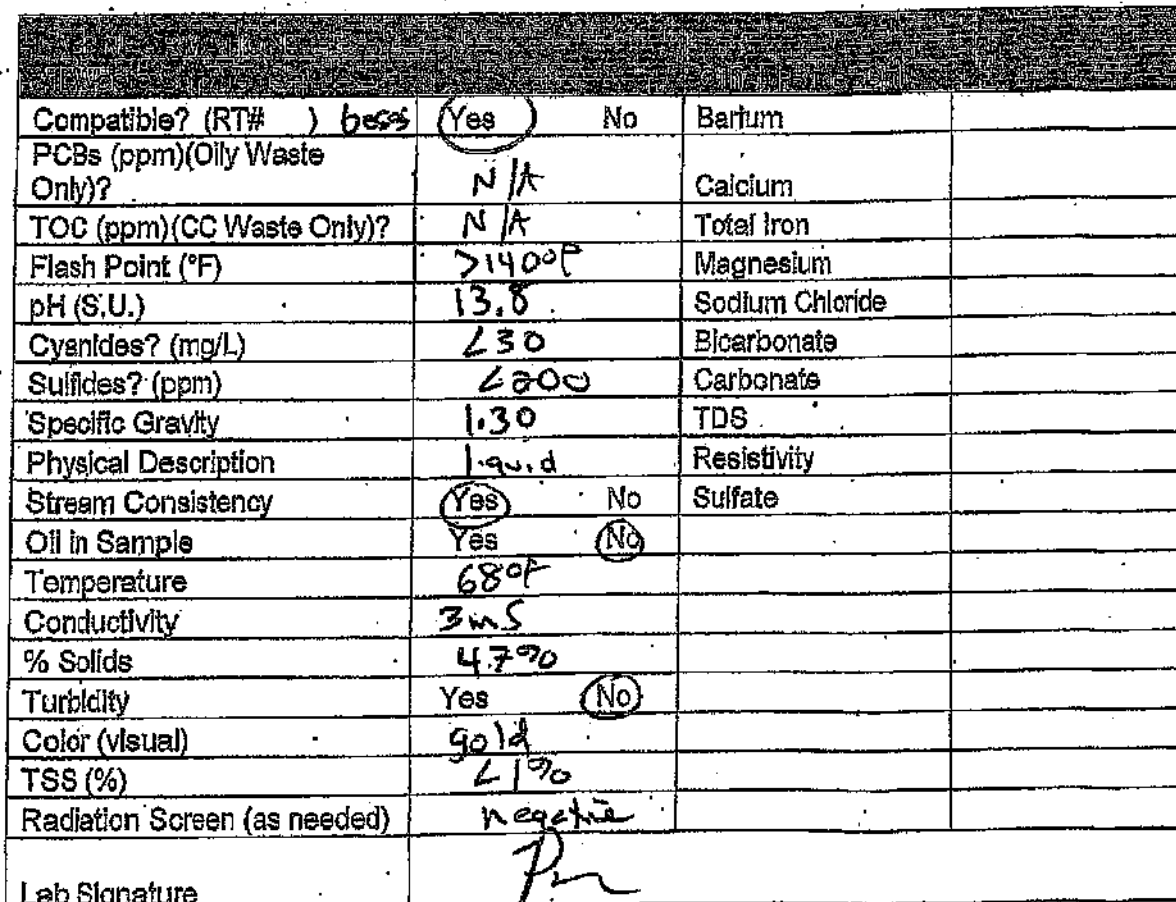 Compatible? (RT# ) bases Yes No Barium
PCBs (ppm)(Oily Waste
Only)? N/A Calcium
TOC (ppm)(CC Waste Only)? N/A Total Iron
Flash Point (°F) >140°F Magnesium
pH (S.U.) 13.8 Sodium Chloride
Cyanides? (mg/L) <30 Bicarbonate
Sulfides? (ppm) <200 Carbonate
Specific Gravity 1.30 TDS
Physical Description liquid Resistivity
Stream Consistency Yes No Sulfate
Oil in Sample Yes No
Temperature 68°F
Conductivity 3mS
% Solids 4.7%
Turbidity Yes No
Color (visual) gold
TSS (%) <1%
Radiation Screen (as needed) negative
Lab Signature